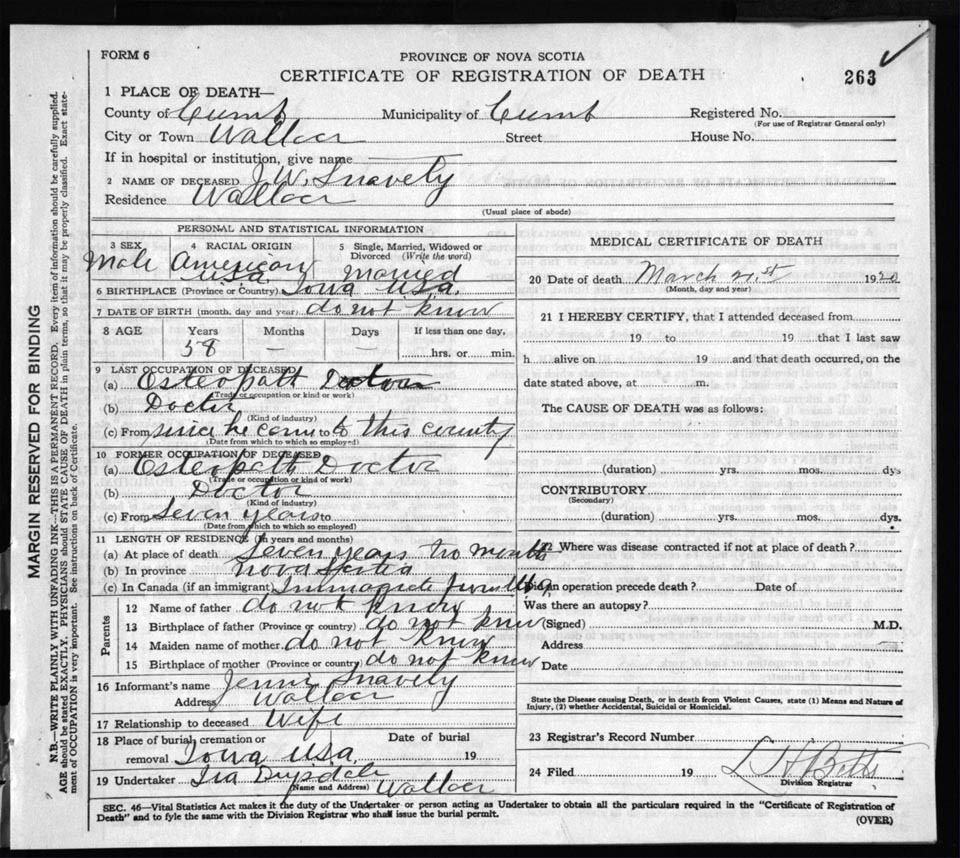 FORM 6
PROVINCE OF NOVA SCOTIA
CERTIFICATE OF REGISTRATION OF DEATH
263
1 PLACE OF DEATH—
County of Cumb Municipality of Cumb Registered No.
(For use of Registrar General only)
City or Town Wallace Street House No.
If in hospital or institution, give name
2 NAME OF DECEASED J. W. Snavely
Residence Wallace
(Usual place of abode)
PERSONAL AND STATISTICAL INFORMATION
3 SEX 4 RACIAL ORIGIN 5 Single, Married, Widowed or Divorced (Write the word)
Male American USA married
6 BIRTHPLACE (Province or Country) Iowa USA.
7 DATE OF BIRTH (month, day and year) do not know
8 AGE Years Months Days If less than one day,
58 — — hrs. or min.
9 LAST OCCUPATION OF DECEASED
(a) Osteopath Doctor
(Trade or occupation or kind of work)
(b) Doctor
(Kind of industry)
(c) From since he came to to this county
(Date from which to which so employed)
10 FORMER OCCUPATION OF DECEASED
(a) Osteopath Doctor
(Trade or occupation or kind of work)
(b) Doctor
(Kind of industry)
(c) From Seven years to
(Date from which to which so employed)
11 LENGTH OF RESIDENCE (in years and months)
(a) At place of death Seven years no months
(b) In province nova Scotia
(c) In Canada (if an immigrant) Immigrate from
Parents
12 Name of father do not know
13 Birthplace of father (Province or country) do not know
14 Maiden name of mother do not know
15 Birthplace of mother (Province or country) do not know
16 Informant's name Jenni Snavely
Address Wallace
17 Relationship to deceased Wife
18 Place of burial, cremation or removal Iowa USA. Date of burial 19
19 Undertaker Ira Drysdale Wallace
(Name and Address)
MEDICAL CERTIFICATE OF DEATH
20 Date of death March 21st 19
(Month, day and year)
21 I HEREBY CERTIFY, that I attended deceased from
19 to 19 that I last saw
h alive on 19 and that death occurred, on the
date stated above, at m.
The CAUSE OF DEATH was as follows:
(duration) yrs. mos. dys
CONTRIBUTORY
(Secondary)
(duration) yrs. mos. dys.
22 Where was disease contracted if not at place of death?
Did an operation precede death? Date of
Was there an autopsy?
(Signed) M.D.
Address
Date
State the Disease causing Death, or in death from Violent Causes, state (1) Means and Nature of
Injury, (2) whether Accidental, Suicidal or Homicidal.
23 Registrar's Record Number
24 Filed 19
Division Registrar
SEC. 46—Vital Statistics Act makes it the duty of the Undertaker or person acting as Undertaker to obtain all the particulars required in the "Certificate of Registration of
Death" and to fyle the same with the Division Registrar who shall issue the burial permit.
(OVER)
MARGIN RESERVED FOR BINDING
N.B.—WRITE PLAINLY WITH UNFADING INK—THIS IS A PERMANENT RECORD. Every item of information should be carefully supplied.
AGE should be stated EXACTLY. PHYSICIANS should STATE CAUSE OF DEATH in plain terms, so that it may be properly classified. Exact state-
ment of OCCUPATION is very important. See instructions on back of Certificate.